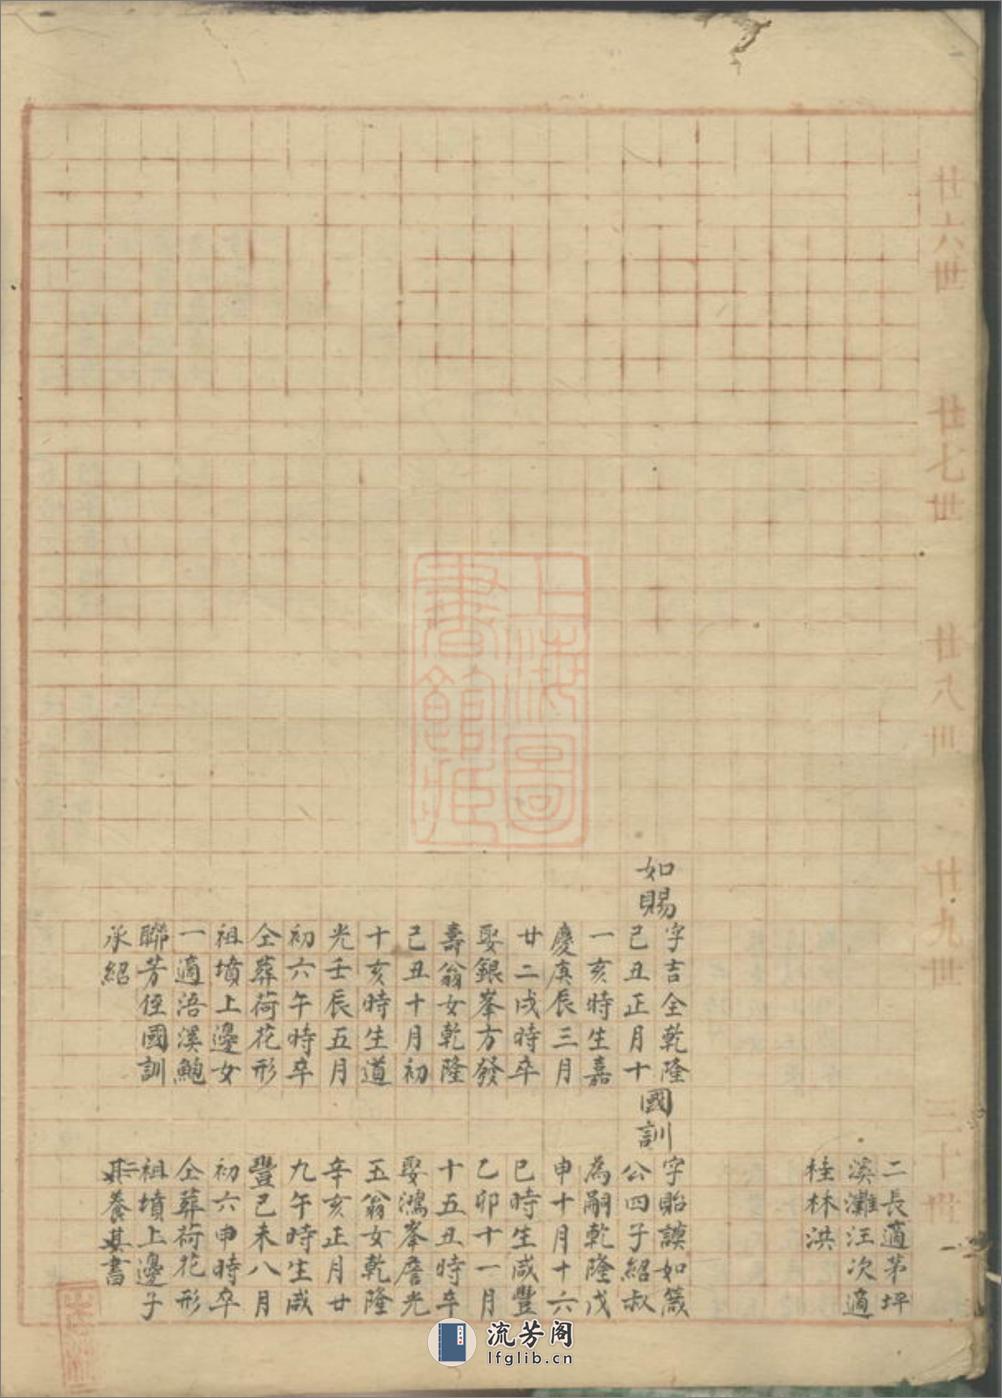 廿六世
廿七世
廿八世
廿九世
三十世
二長適茅坪
溪灘汪次適
桂林洪
如賜
字吉全乾隆
己丑正月十
一亥時生嘉
慶庚辰三月
廿二戌時卒
娶銀峯方發
壽翁女乾隆
己丑十月初
十亥時生道
光壬辰五月
初六午時卒
仝葬荷花形
祖墳上邊女
一適浯溪鮑
聯芳侄國訓
承紹
國訓
字貽謨如箴
公四子紹叔
為嗣乾隆戊
申十月十六
巳時生咸豐
乙卯十一月
十五丑時卒
娶鴻峯詹光
五翁女乾隆
辛亥正月廿
九午時生咸
豐己未八月
初六申時卒
仝葬荷花形
祖墳上邊子
二其養其書
上海圖
書館藏
流芳阁
lfglib.cn